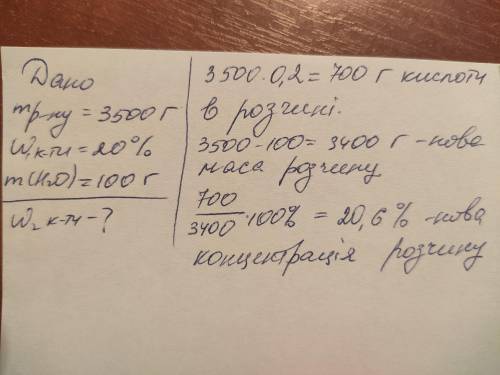 Дано
mр-ну = 3500 г
W₁к-ти = 20%
m(H₂O) = 100 г
W₂ к-ти - ?
3500 · 0,2 = 700 г кислоти
в розчині.
3500 - 100 = 3400 г - нова
маса розчину
700/3400 · 100% = 20,6% - нова
концентрація розчину